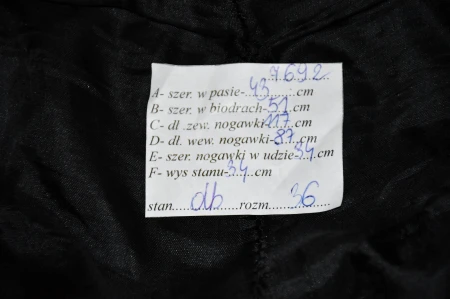 7692
A- szer. w pasie-43.......cm
B- szer. w biodrach-51..cm
C- dł .zew. nogawki-117..cm
D- dł. wew. nogawki-87..cm
E- szer. nogawki w udzie-34.cm
F- wys stanu-34...cm
stan....db....rozm....36......